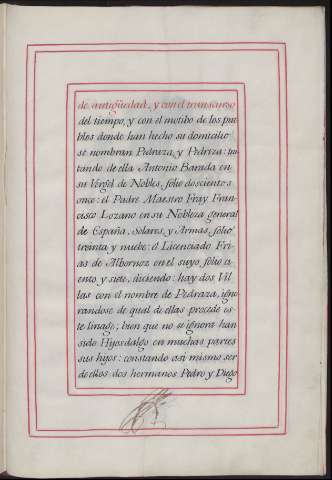 de antigüedad, y con el transcurso
del tiempo, y con el motibo de los pue
bles donde han hecho su domicilio
se nombran Pedraza, y Pedriza: tra
tando de ella Antonio Barada en
su Vergel de Nobles, folio doscientos
once: el Padre Maestro Fray Fran-
cisco Lozano en su Nobleza general
de España, Solares, y Armas, folio
treinta y nuebe: el Licenciado Fri-
as de Albornoz en el suyo, folio ci
ento y siete, diciendo: hay dos Vil
las con el nombre de Pedraza, igno
randose de qual de ellas procede es-
te linage; bien que no se ignora han
sido Hijosdalgo en muchas partes
sus hijos: constando asi mismo ser
de ellos dos hermanos Pedro y Diego